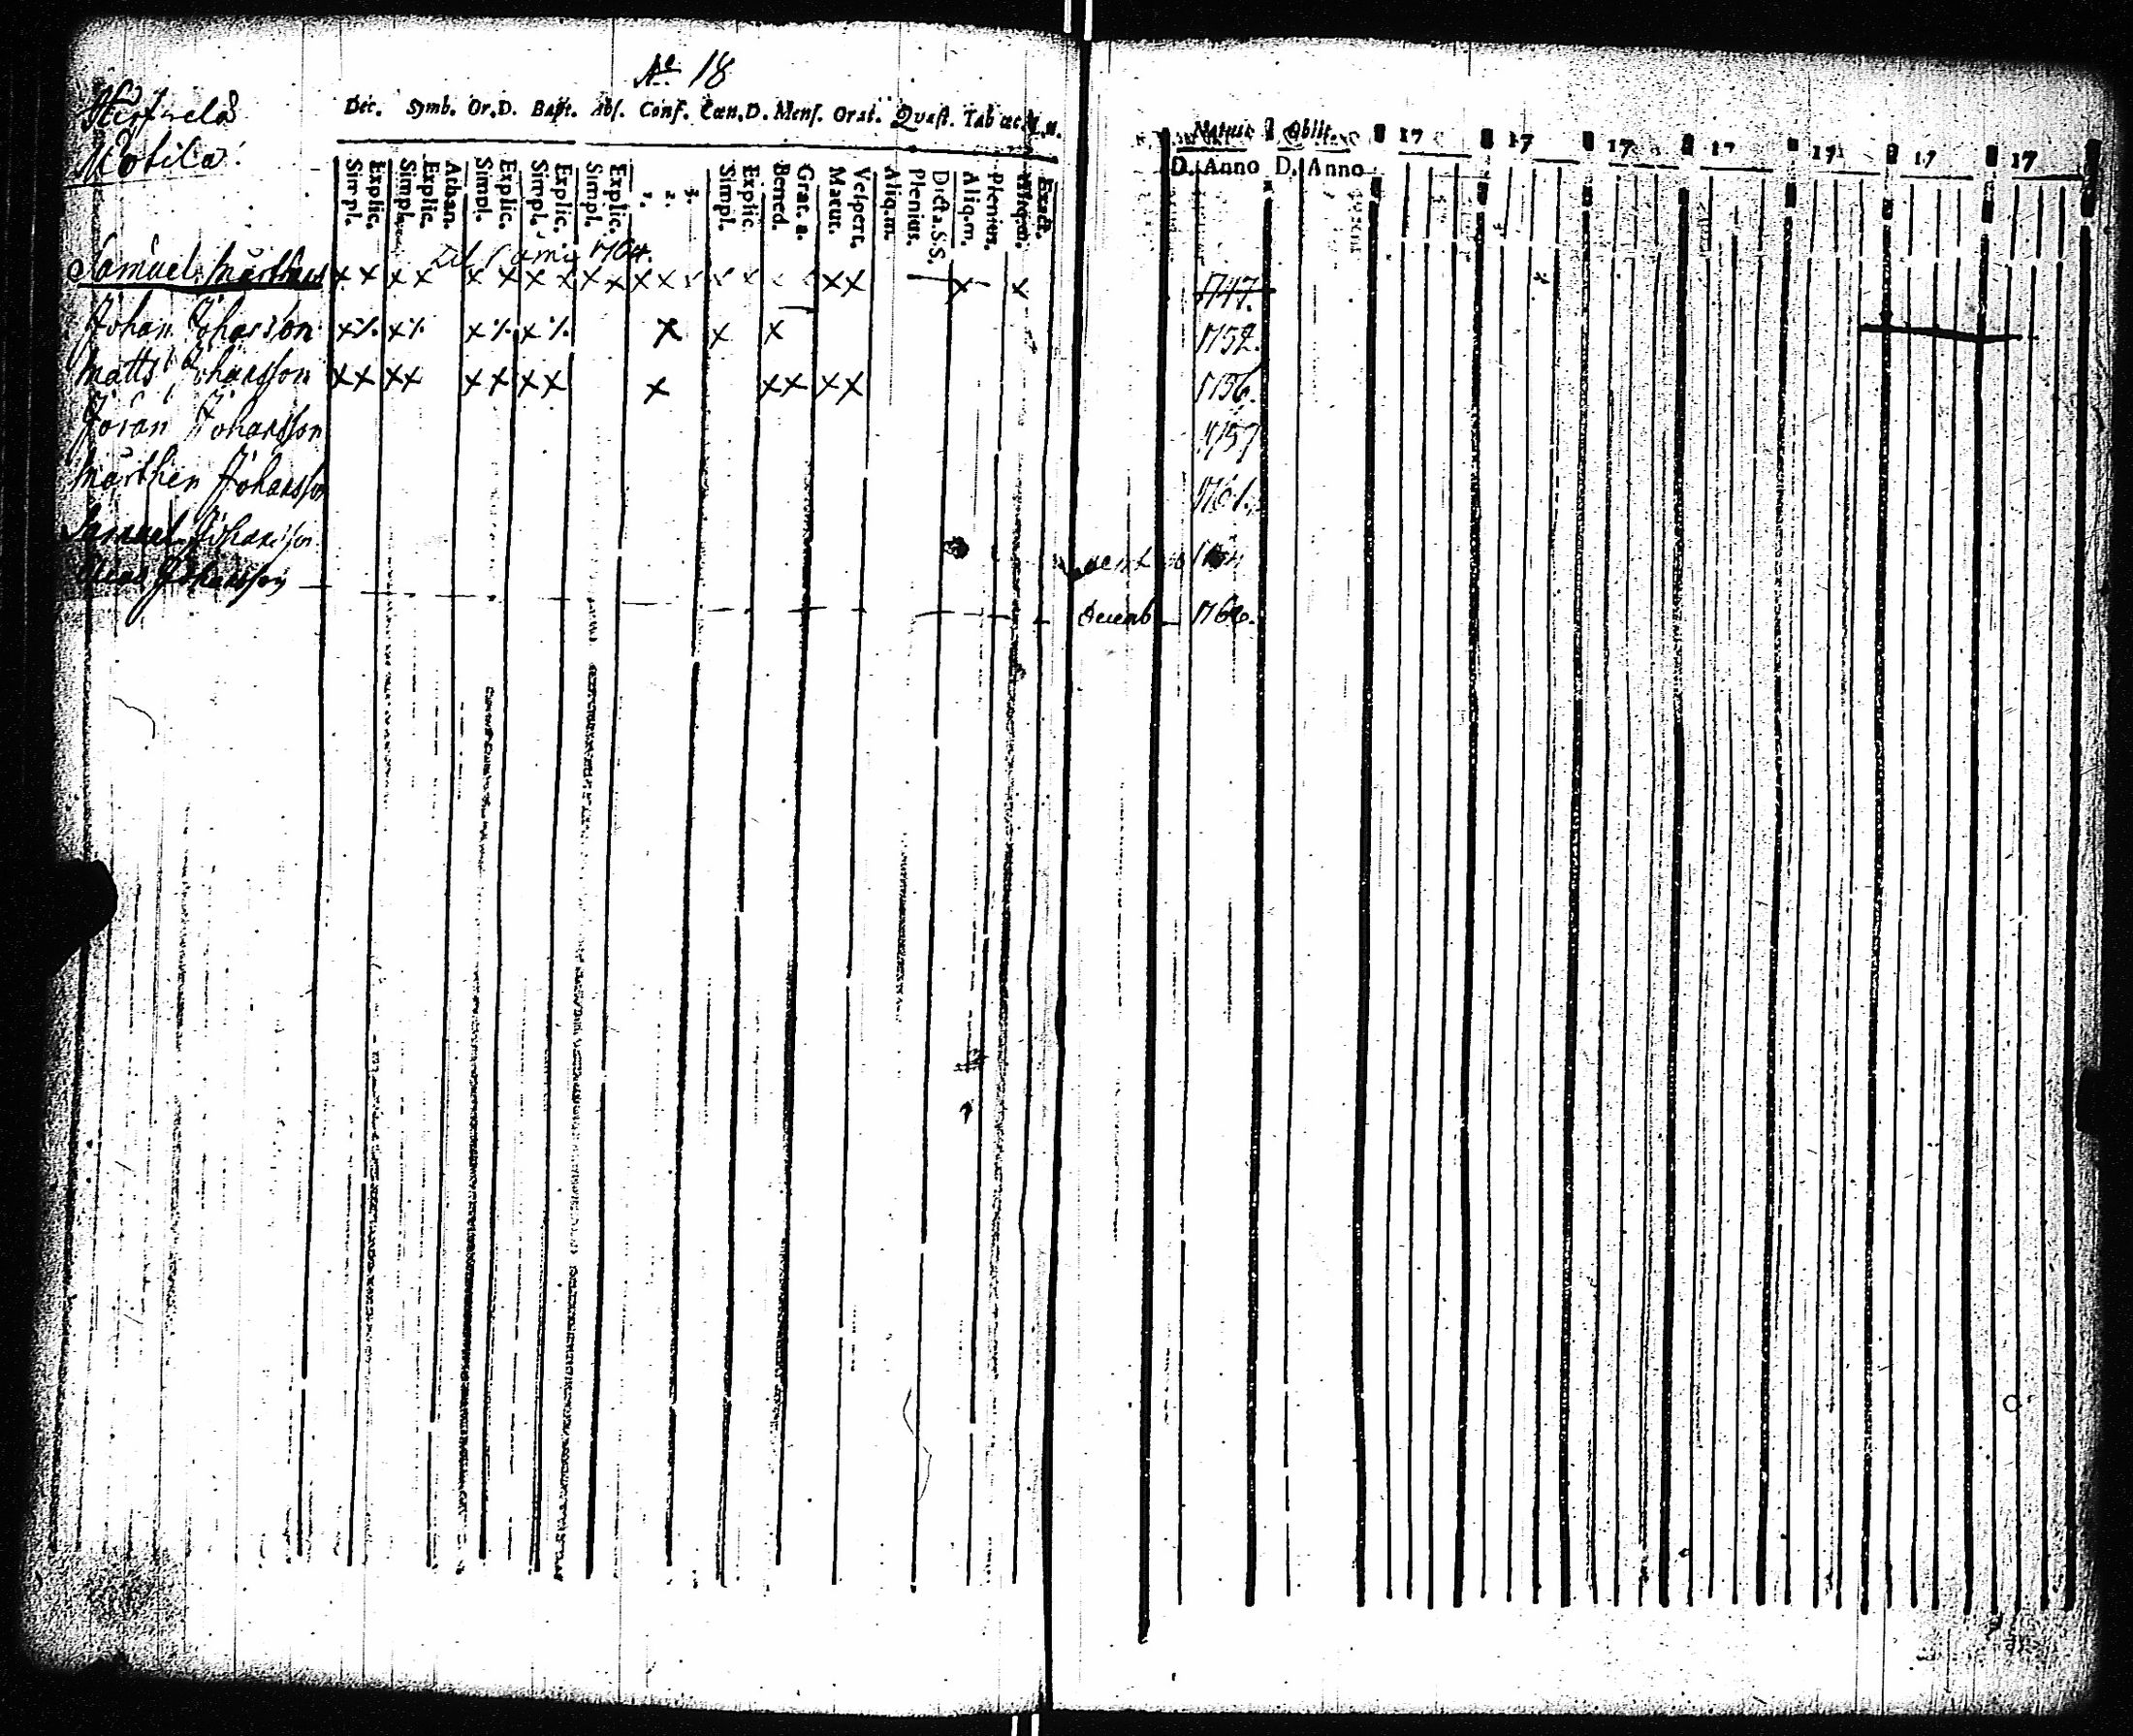 No 18
Motila
Dec. Symb. Or.D. Bapt. Abs. Conf. Cœn.D. Mens. Orat. Quæst. Tab œc.
Natus Obiit.
17 17 17 17 17 17 17
D. Anno D. Anno
Simpl. Explic. Simpl. Explic. Athan. Simpl. Explic. Simpl. Explic. Simpl. Explic. 1. 2. 3. Simpl. Explic. Bened. Grat. a. Matut. Vespert. Aliq.m. Plenius. Dicta.S.S. Aliq.m. Plenius. Exact.
1764.
Samuel Mårthens x x x x x x x x x x x x x x x x 1747.
Johan Johansson x ⁒ x ⁒ x ⁒ x ⁒ x x x 1752.
Matts Johansson x x x x x x x x x x x x x 1756.
Jöran Johansson 1757
Mårthen Johansson 1761.
Samuel Johansson
Johansson Decemb 1766.